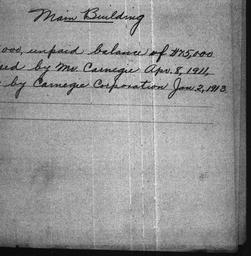 Main Building
000, unpaid balance of $75,000
ed by Mr. Carnegie Apr. 8, 1911,
by Carnegie Corporation Jan. 2, 1913.